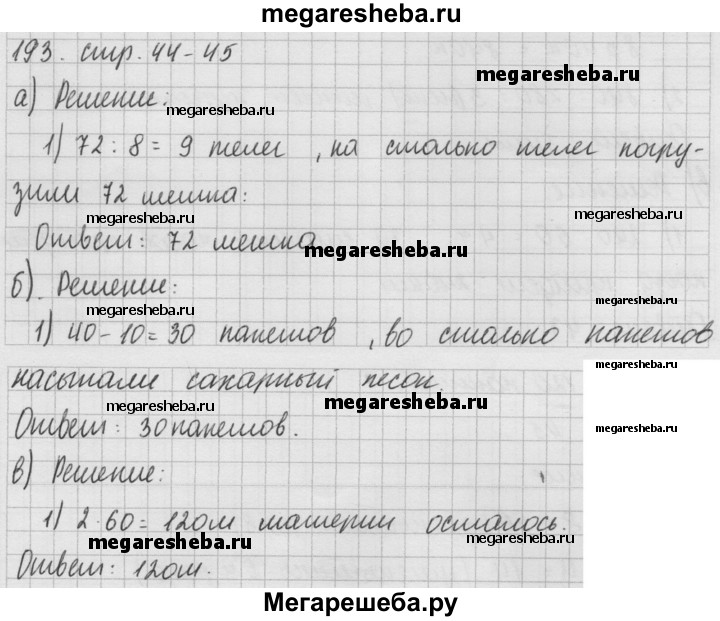 megaresheba.ru
193. стр. 44-45
megaresheba.ru
а) Решение:
megaresheba.ru
1) 72 : 8 = 9 телег , на столько телег погру-
зили 72 мешка:
megaresheba.ru
megaresheba.ru
Ответ: 72 мешка
megaresheba.ru
б) Решение:
megaresheba.ru
megaresheba.ru
1) 40-10=30 пакетов , во столько пакетов
megaresheba.ru
насыпали сахарный песок.
megaresheba.ru
megaresheba.ru
Ответ: 30 пакетов.
megaresheba.ru
в) Решение:
1) 2·60=120м материи осталось.
megaresheba.ru
megaresheba.ru
Ответ: 120м.
Мегарешеба.ру